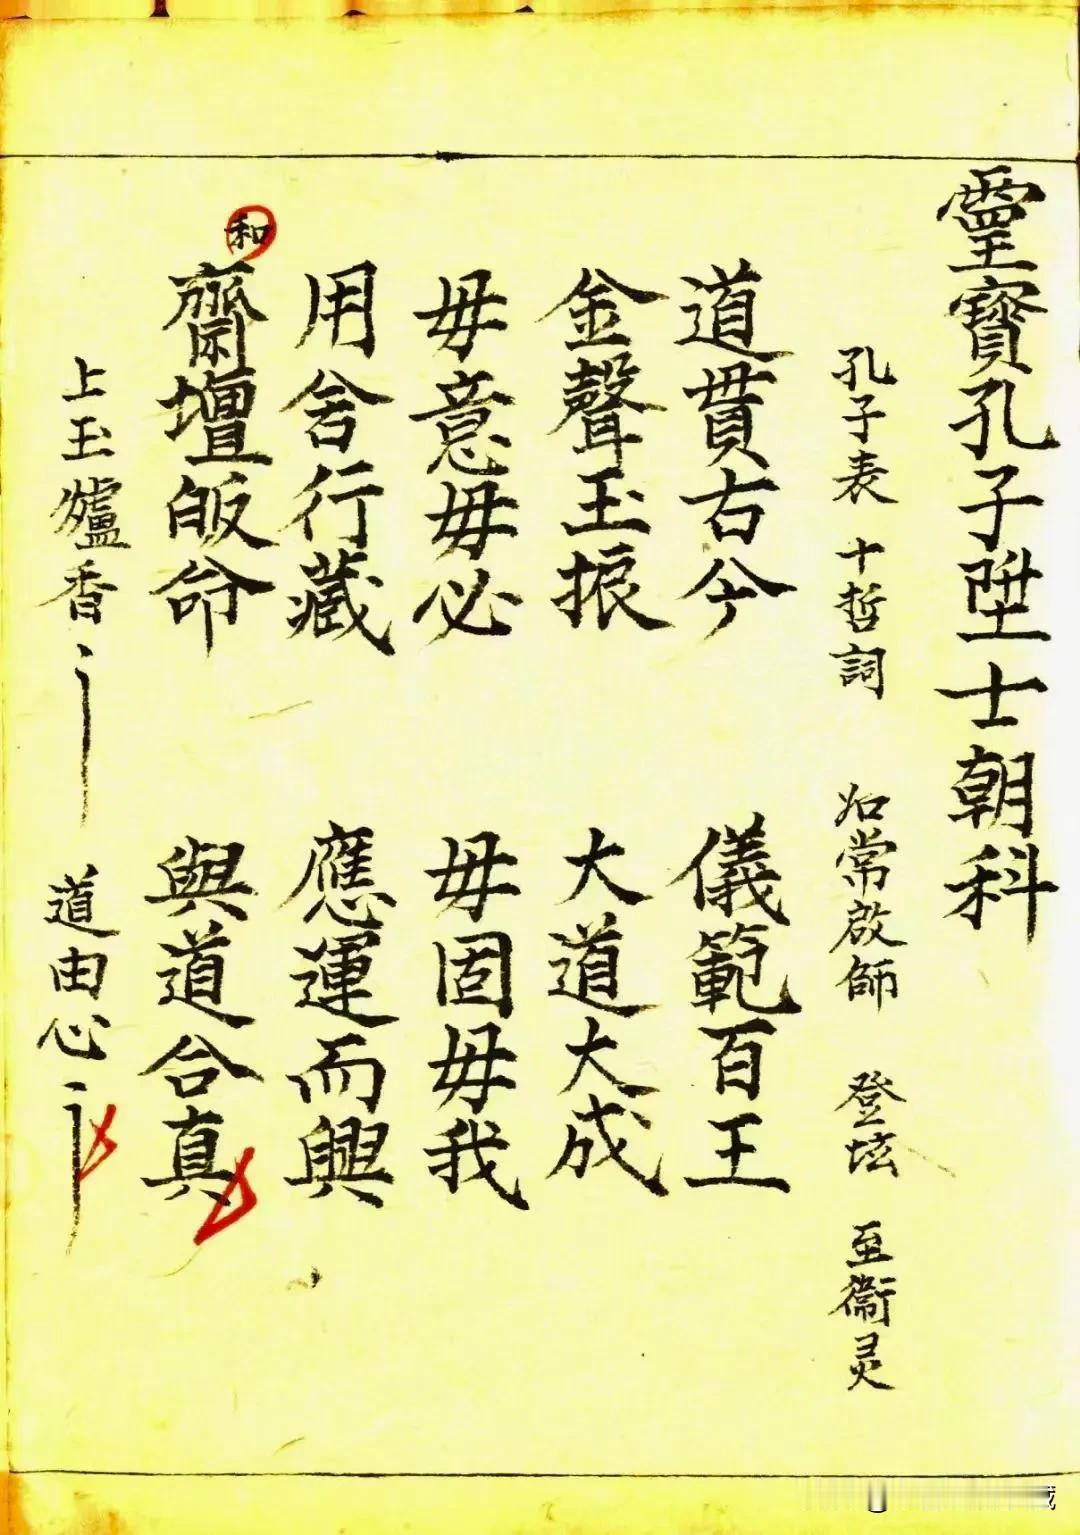 靈寶孔子陞士朝科
孔子表 十哲詞 如常啟師 登坛 至衞灵
道貫古今 儀範百王
金聲玉振 大道大成
毋意毋必 毋固毋我
用舍行藏 應運而興
和
齋壇皈命 與道合真
上玉爐香 道由心